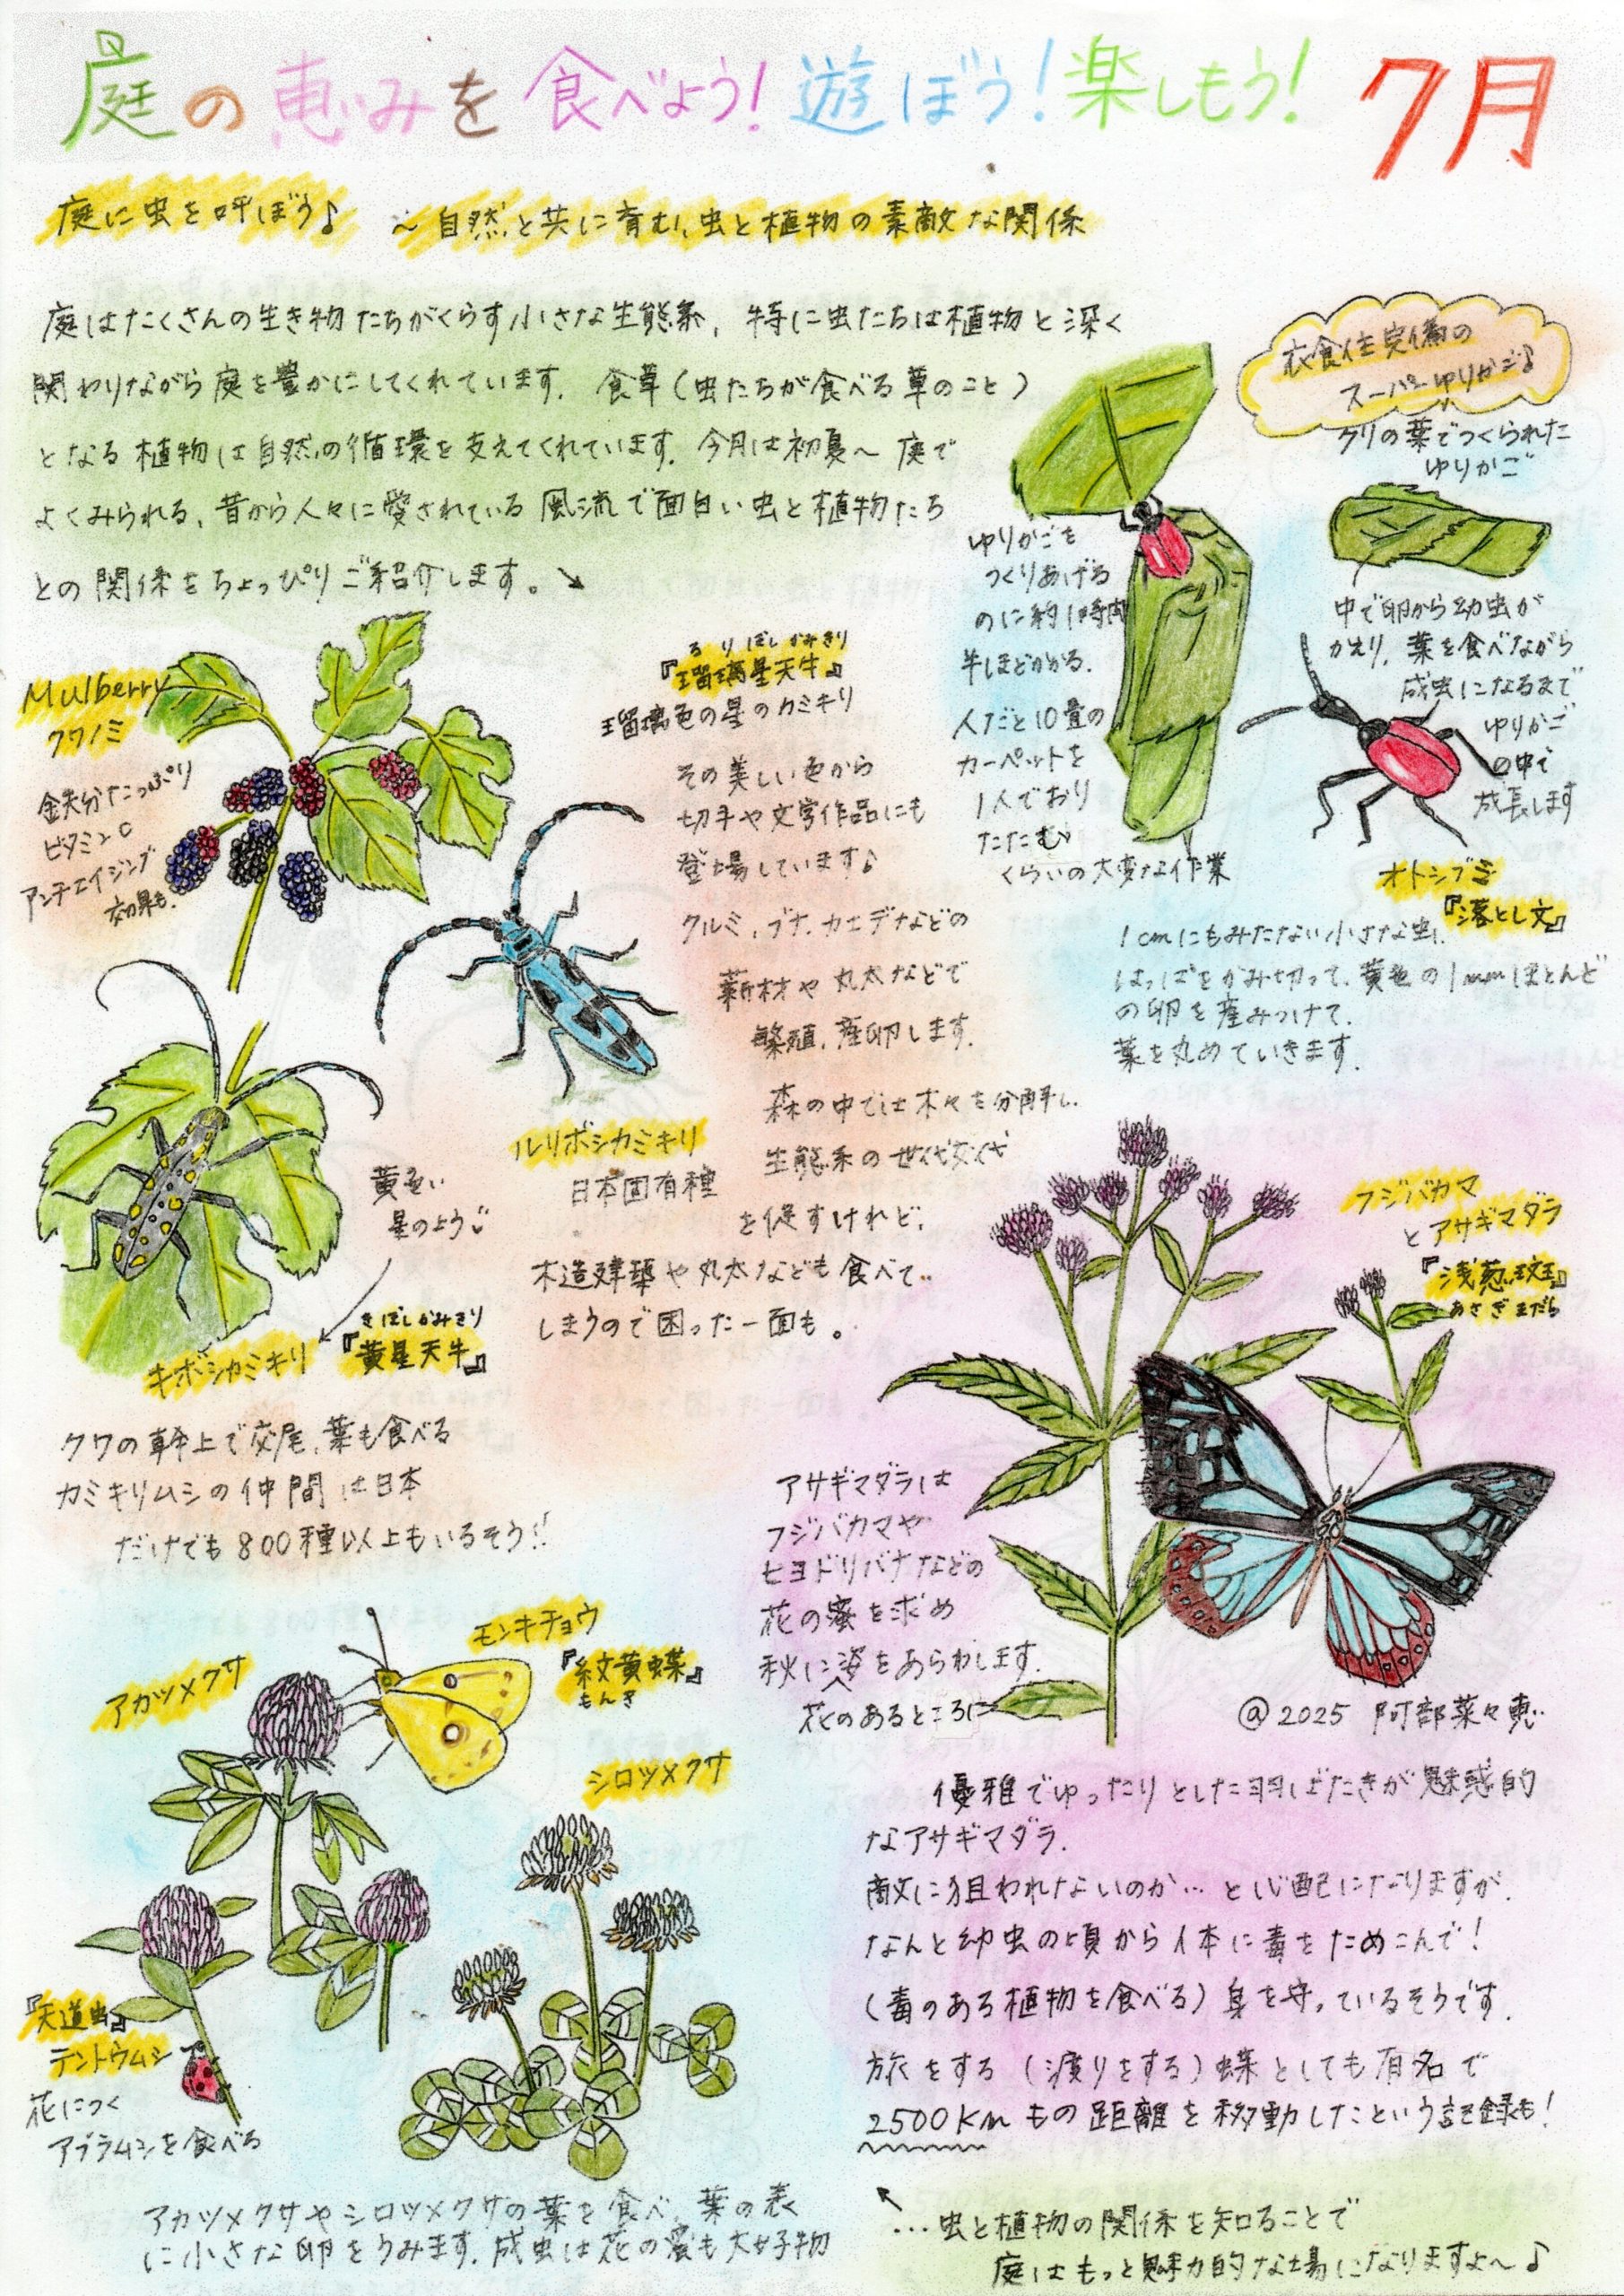 庭の恵みを食べよう！遊ぼう！楽しもう！ 7月
庭に虫を呼ぼう♪ ～自然と共に育む、虫と植物の素敵な関係
庭はたくさんの生き物たちがくらす小さな生態系、特に虫たちは植物と深く
関わりながら庭を豊かにしてくれています。食草（虫たちが食べる草のこと）
となる植物は自然の循環を支えてくれています。今月は初夏～庭で
よくみられる、昔から人々に愛されている風流で面白い虫と植物たち
との関係をちょっぴりご紹介します。↘
衣食住完備の
スーパーゆりかご♪
クリの葉でつくられた
ゆりかご
中で卵から幼虫が
かえり、葉を食べながら
成虫になるまで
ゆりかご
の中で
成長します
ゆりかごを
つくりあげる
のに約1時間
半ほどかかる。
人だと10畳の
カーペットを
1人でおり
たたむ
くらいの大変な作業
オトシブミ
『落とし文』
1cmにもみたない小さな虫。
はっぱをかみ切って、黄色の1mmほとんど
の卵を産みつけて、
葉を丸めていきます。
Mulberry
クワノミ
鉄分たっぷり
ビタミンC
アンチエイジング
効果も。
るりぼしかみきり
『瑠璃星天牛』
瑠璃色の星のカミキリ
その美しい色から
切手や文学作品にも
登場しています♪
クルミ、ブナ、カエデなどの
薪材や丸太などで
繁殖、産卵します。
森の中では木々を分解し、
生態系の世代交代
を促すけれど、
木造建築や丸太なども食べて
しまうので困った一面も。
ルリボシカミキリ
日本固有種
黄色い
星のよう
きぼしかみきり
『黄星天牛』
キボシカミキリ
クワの幹上で交尾、葉も食べる
カミキリムシの仲間は日本
だけでも800種以上もいるそう!!
フジバカマ
とアサギマダラ
『浅葱斑』
あさぎまだら
アサギマダラは
フジバカマや
ヒヨドリバナなどの
花の蜜を求め
秋に姿をあらわします。
花のあるところに
@2025 阿部菜々恵
優雅でゆったりとした羽ばたきが魅惑的
なアサギマダラ。
敵に狙われないのか…と心配になりますが、
なんと幼虫の頃から体に毒をためこんで！
（毒のある植物を食べる）身を守っているそうです。
旅をする（渡りをする）蝶としても有名で
2500Kmもの距離を移動したという記録も！
モンキチョウ
『紋黄蝶』
もんき
アカツメクサ
シロツメクサ
『天道虫』
テントウムシ
花につく
アブラムシを食べる
アカツメクサやシロツメクサの葉を食べ、葉の表
に小さな卵をうみます。成虫は花の蜜も大好物
…虫と植物の関係を知ることで
庭はもっと魅力的な場になりますよ～♪